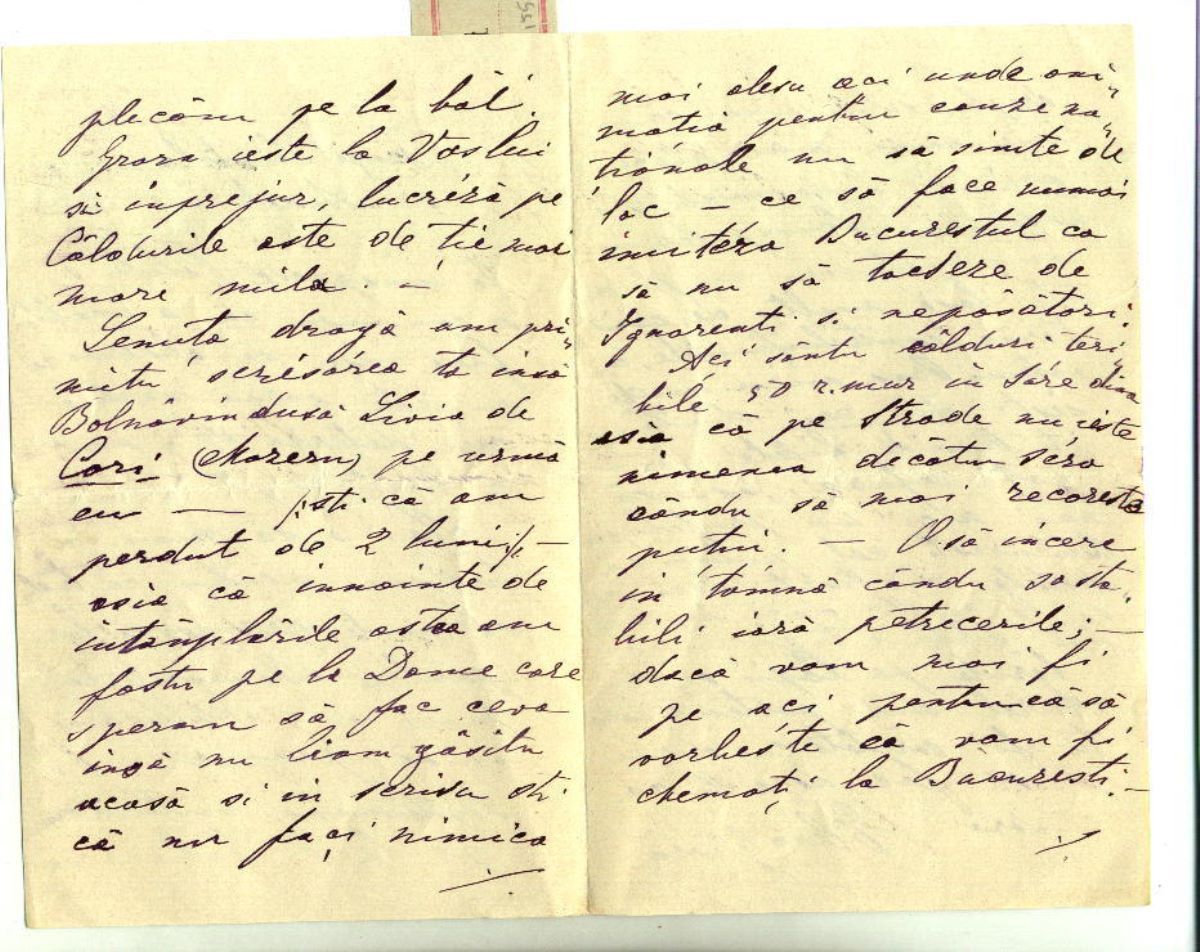 plecăm pe la băl.
Groza ieste la Vaslui
si inprejur, lucréză pe
Căldurile aste de ție mai
mare mila. —
Lenuta dragă am pri„
mitu scrisórea ta insă
Bolnăvindusă Livia de
Cori (Mozern) pe urmă
eu — sti că am
perdut de 2 luni /. —
asia că innainte de
intâmplările astea am
fostu pe la Dame care
speram să fac ceva
insă nu liam găsitu
acasă si in scrisu sti
că nu faci nimica
mai alesu aci unde ani„
matia pentru cauze na„
tionale nu să simte de
loc — ce să face numai
imitéza Bucurestul ca
să nu să tacseze de
Ignorenti si nepăsători.
Aci săntu călduri teri„
bile 50 r.mur in Sóre
asia că pe Strade nu ieste
nimenea decătu séra
căndu să mai recoresta
putin. — O să incerc
in tómnă căndu sa sta„
bili iară petrecerile; —
dacă vom mai fi
pe aci pentrucă să
vorbeste că vom fi
chemați la Bucuresti. —